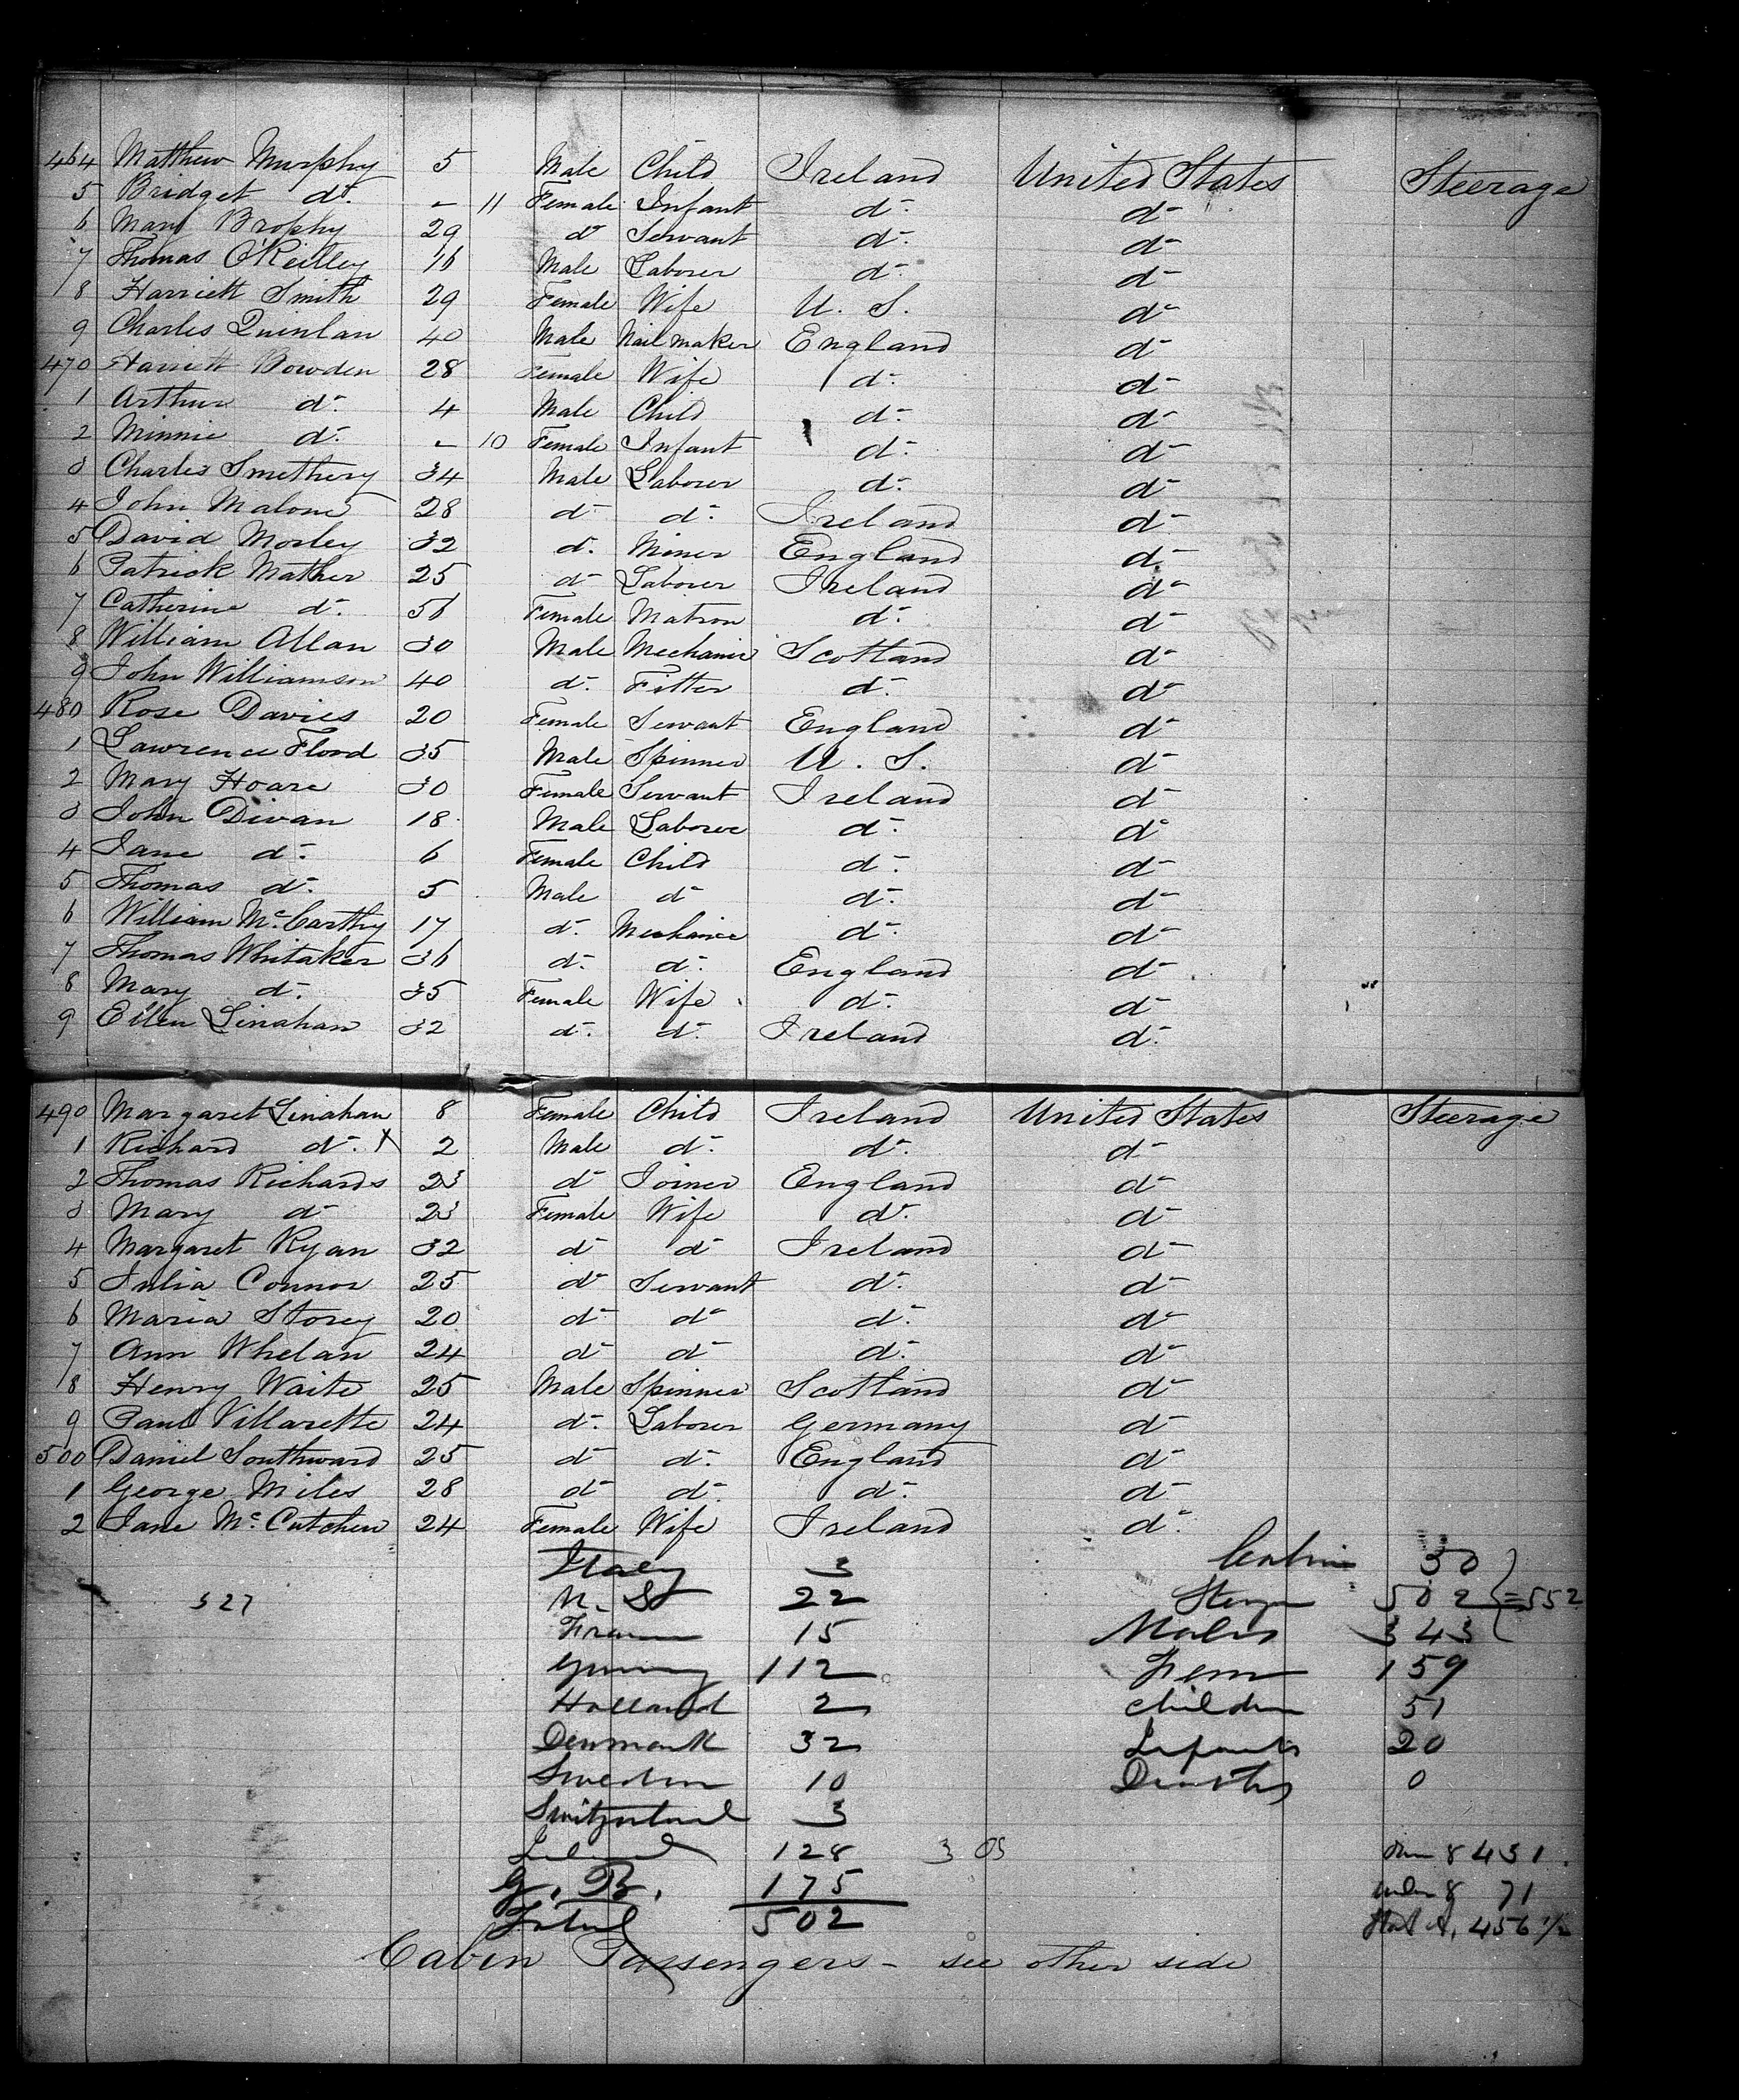 464 Matthew Murphy 5 Male Child Ireland United States Steerage
5 Bridget do. - 11 Female Infant do. do
6 Mary Brophy 29 do Servant do. do
7 Thomas O'Reilley 16 Male Laborer do. do
8 Harriett Smith 29 Female Wife U. S. do
9 Charles Quinlan 40 Male Nail maker England do
470 Harriett Bowden 28 Female Wife do. do
1 Arthur do. 4 Male Child do. do
2 Minnie do. - 10 Female Infant do. do
3 Charles Smethery 34 Male Laborer do. do
4 John Malone 28 do do. Ireland do
5 David Morley 32 do. Miner England do.
6 Patrick Mather 25 do Laborer Ireland do
7 Catherine do. 56 Female Matron do. do
8 William Allan 30 Male Mechanic Scotland do
9 John Williamson 40 do. Fitter do. do
480 Rose Davies 20 Female Servant England do
1 Lawrence Flood 35 Male Spinner U. S. do
2 Mary Hoare 30 Female Servant Ireland do
3 John Divan 18 Male Laborer do. do
4 Jane do. 6 Female Child do. do
5 Thomas do. 5 Male do do. do
6 William McCarthy 17 do. Mechanic do. do
7 Thomas Whitaker 36 do. do. England do
8 Mary do. 35 Female Wife do. do
9 Ellen Linahan 32 do. do. Ireland do.
490 Margaret Linahan 8 Female Child Ireland United States Steerage
1 Richard do. X 2 Male do. do. do
2 Thomas Richards 23 do Joiner England do
3 Mary do 23 Female Wife do. do
4 Margaret Ryan 32 do do Ireland do
5 Julia Connor 25 do Servant do. do
6 Maria Storey 20 do do do. do
7 Ann Whelan 24 do do do. do
8 Henry Waite 25 Male Spinner Scotland do
9 Paul Villarette 24 do. Laborer Germany do
500 Daniel Southward 25 do do. England do
1 George Miles 28 do do. do. do
2 Jane McCutchen 24 Female Wife Ireland do.
Italy 3 Cabin 50
527 U. S 22 Steerage 502 = 552
France 15 Males 343
Germany 112 Fem 159
Holland 2 Children 51
Denmark 32 Infants 20
Sweden 10 Deaths 0
Switzerland 3
Ireland 128 3 03 over 8 431
G. B. 175 under 8 71
Total 502 456 1/2
Cabin Passengers - see other side